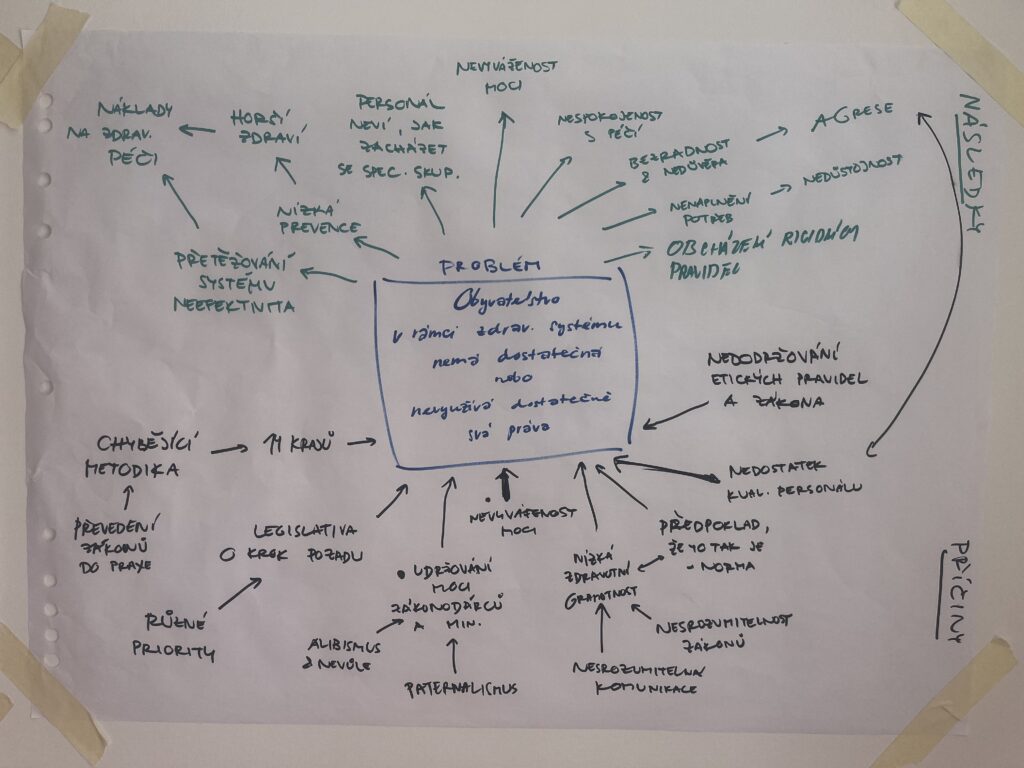 NEVYVÁŽENOST
MOCI
NÁKLADY
NA ZDRAV.
PÉČI
HORČÍ
ZDRAVÍ
PERSONÁL
NEVÍ, JAK
ZACHÁZET
SE SPEC. SKUP.
NESPOKOJENOST
S PÉČÍ
BEZRADNOST
& NEDŮVĚRA
AGRESE
NÁSLEDKY
NENAPLNĚNÍ
POTŘEB
NEDŮSTOJNOST
OBCHÁZENÍ RIGIDNÍCH
PRAVIDEL
NÍZKÁ
PREVENCE
PŘETĚŽOVÁNÍ
SYSTÉMU
NEEFEKTIVITA
PROBLÉM
Obyvatelstvo
v rámci zdrav. systému
nemá dostatečná
nebo
nevyužívá dostatečně
svá práva
NEDODRŽOVÁNÍ
ETICKÝCH PRAVIDEL
A ZÁKONA
CHYBĚJÍCÍ
METODIKA
14 KRAJŮ
NEDOSTATEK
KVAL. PERSONÁLU
PŘEVEDENÍ
ZÁKONŮ
DO PRAXE
LEGISLATIVA
O KROK POZADU
RŮZNÉ
PRIORITY
• NEVYVÁŽENOST
MOCI
• UDRŽOVÁNÍ
MOCI
ZÁKONODÁRCŮ
A MIN.
ALIBISMUS
& NEVŮLE
PATERNALISMUS
NÍZKÁ
ZDRAVOTNÍ
GRAMOTNOST
PŘEDPOKLAD,
ŽE TO TAK JE
- NORMA
NESROZUMITELNOST
ZÁKONŮ
NESROZUMITELNÁ
KOMUNIKACE
PŘÍČINY